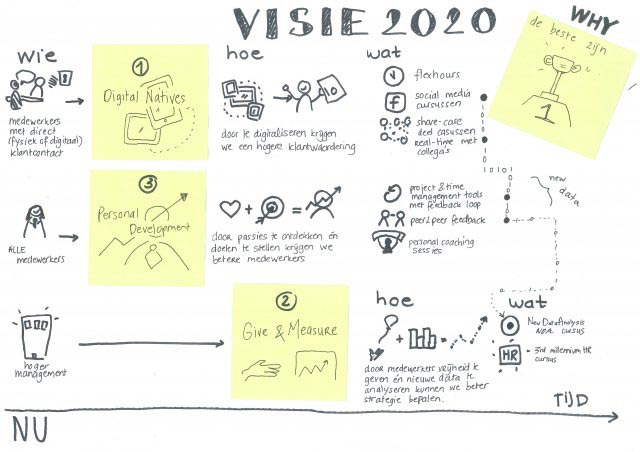 VISIE 2020
WHY
de beste zijn
1
wie
hoe
wat
medewerkers
met direct
(fysiek of digitaal)
klantcontact
1
Digital Natives
door te digitaliseren krijgen
we een hogere klantwaardering
flexhours
social media
cursussen
share-care
deel casussen
real-time met
collega's
ALLE
medewerkers
3
Personal
Development
door passies te ontdekken én
doelen te stellen krijgen we
betere medewerkers
project & time
management tools
met feedback loop
peer2peer feedback
personal coaching
sessies
new
data
hoger
management
2
Give & Measure
hoe
door medewerkers vrijheid te
geven én nieuwe data te
analyseren kunnen we beter
strategie bepalen.
wat
New Data Analysis
NDA cursus
HR
3rd millenium HR
cursus
TIJD
NU